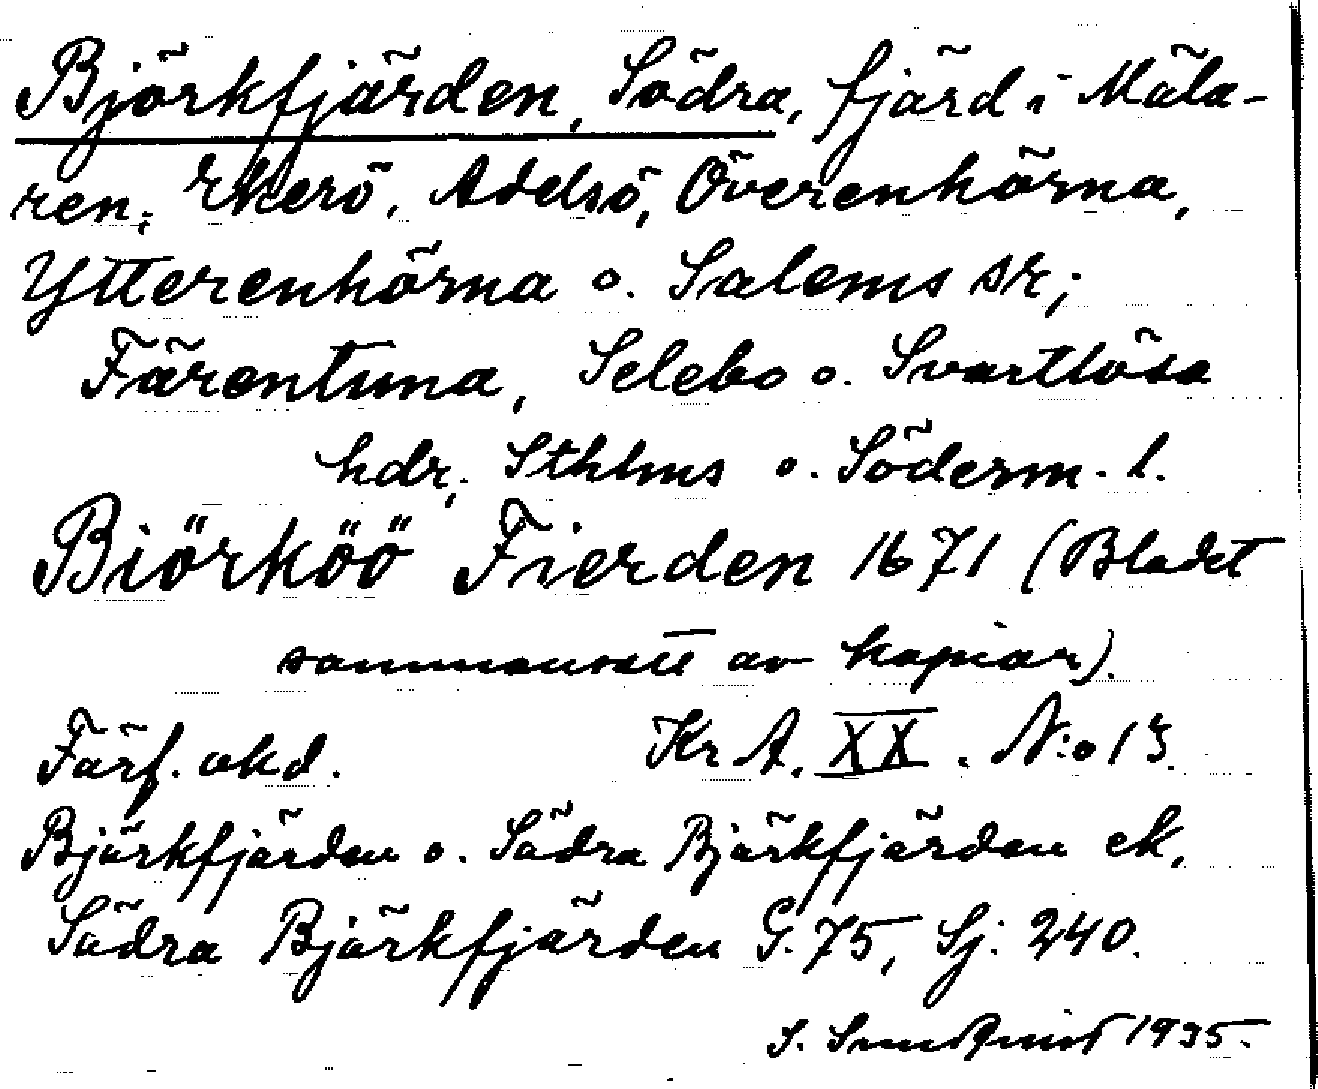 Björkfjärden, Södra, fjärd i Mäla-
ren; Ekerö, Adelsö, Överenhörna,
Ytterenhörna o. Salems sk;
Färentuna, Selebo o. Svartlösa
hdr; Sthlms o. Söderm. l.
Biörköö Fierden 1671 (Bladet
sammansatt av kopior).
Förf. okd. Kr A. XX. N:o 13.
Björkfjärden o. Södra Björkfjärden ek.
Södra Björkfjärden G. 75, Sj: 240.
S. 1935.